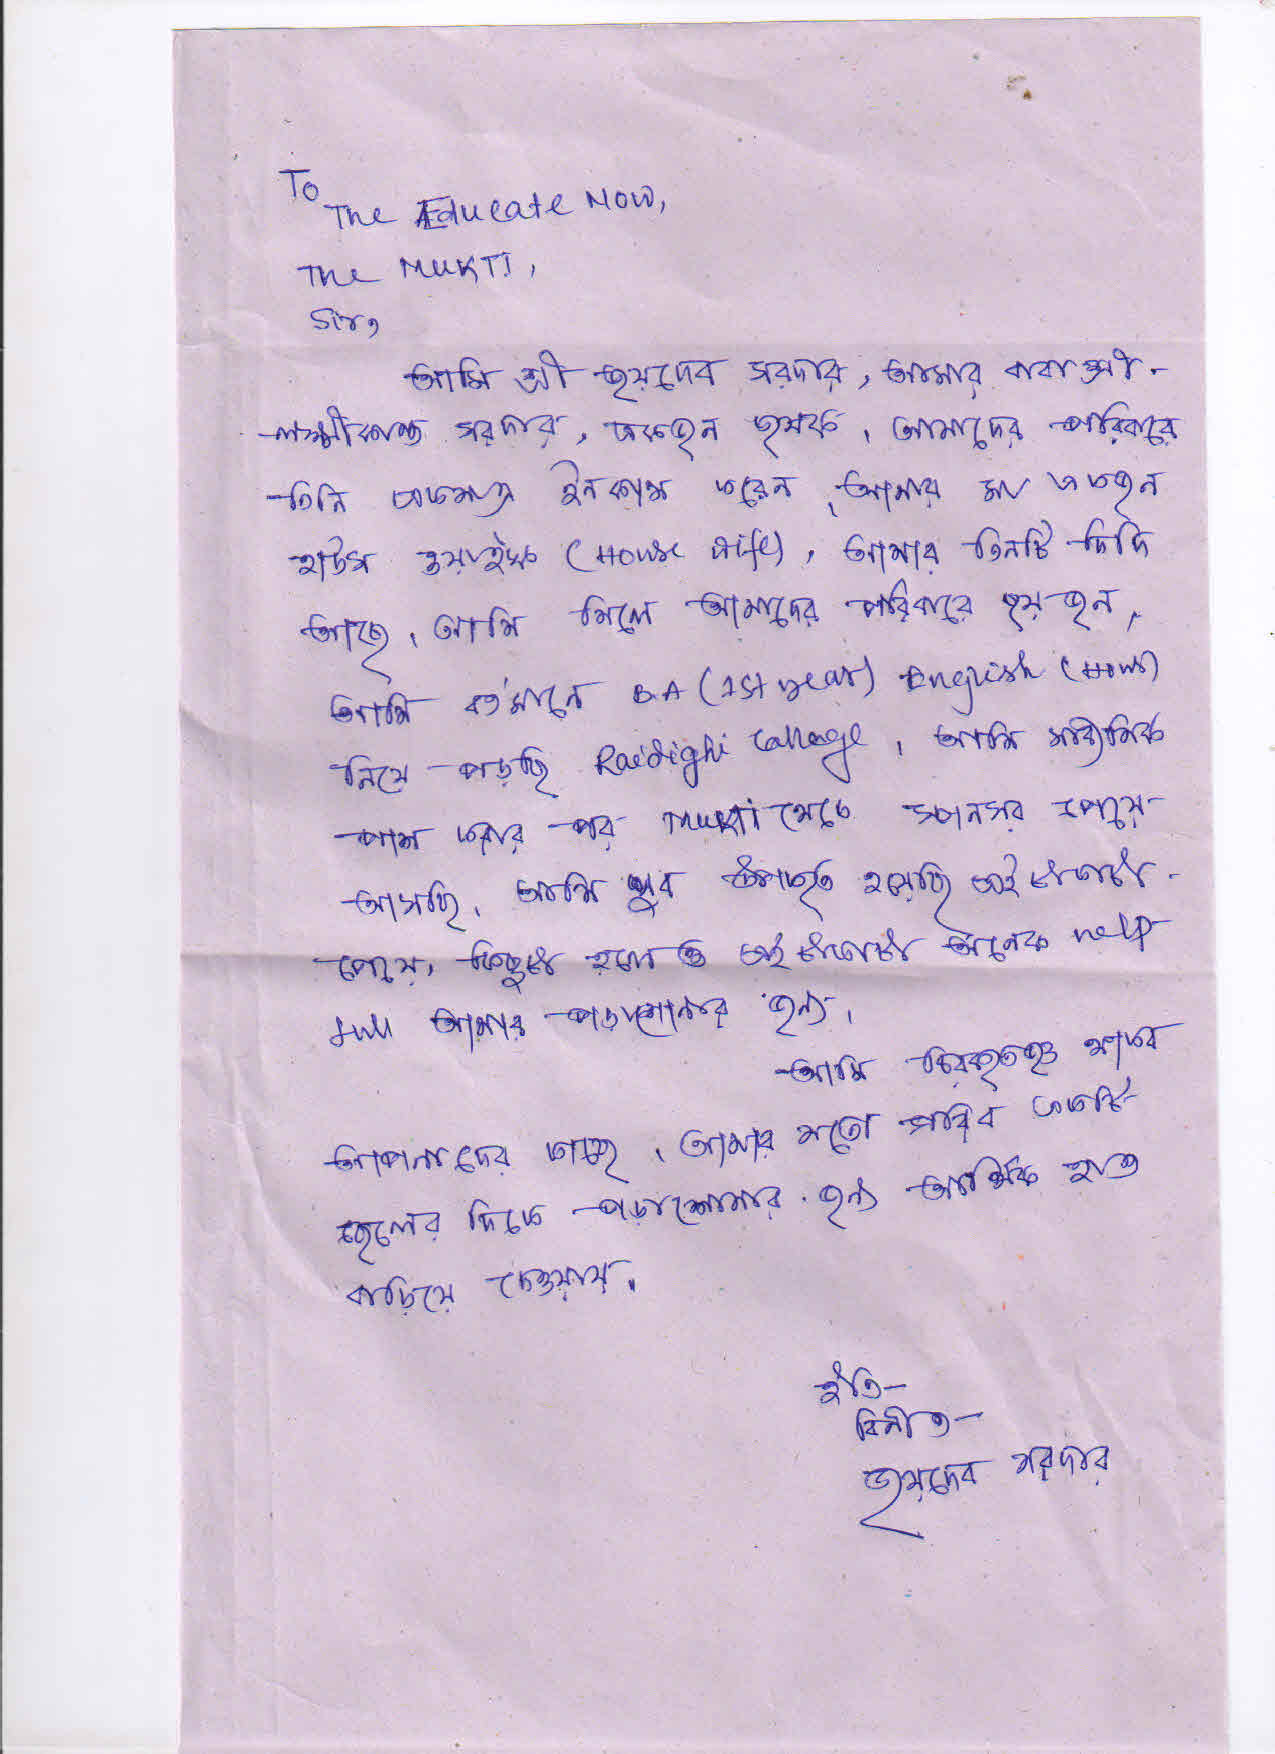 To
The Educate Now,
The MUKTI,
Sir,
আমি শ্রী জয়দেব সরদার, আমার বাবা শ্রী-
লক্ষ্মীকান্ত সরদার, একজন কৃষক। আমাদের পরিবারে
তিনি একমাত্র ইনকাম করেন, আমার মা একজন
হাউস ওয়াইফ (House Wife), আমার তিনটি দিদি
আছে। আমি মিলে আমাদের পরিবারে ছয় জন,
আমি বর্তমানে B.A (1st year) English (Hons)
নিয়ে পড়ছি Raidighi College, আমি মাধ্যমিক
পাশ করার পর Mukti থেকে স্পনসর পেয়ে
আসছি, আমি খুব উপকৃত হয়েছি এই টাকাটা
পেয়ে, কিছুটা হলে ও এই টাকাটা অনেক help
full আমার পড়াশোনার জন্য,
আমি চিরকৃতজ্ঞ থাকব
আপনাদের কাছে, আমার মতো গরিব একটি
ছেলের দিকে পড়াশোনার জন্য আর্থিক হাত
বাড়িয়ে দেওয়ায়,
ইতি-
বিনীত-
জয়দেব সরদার